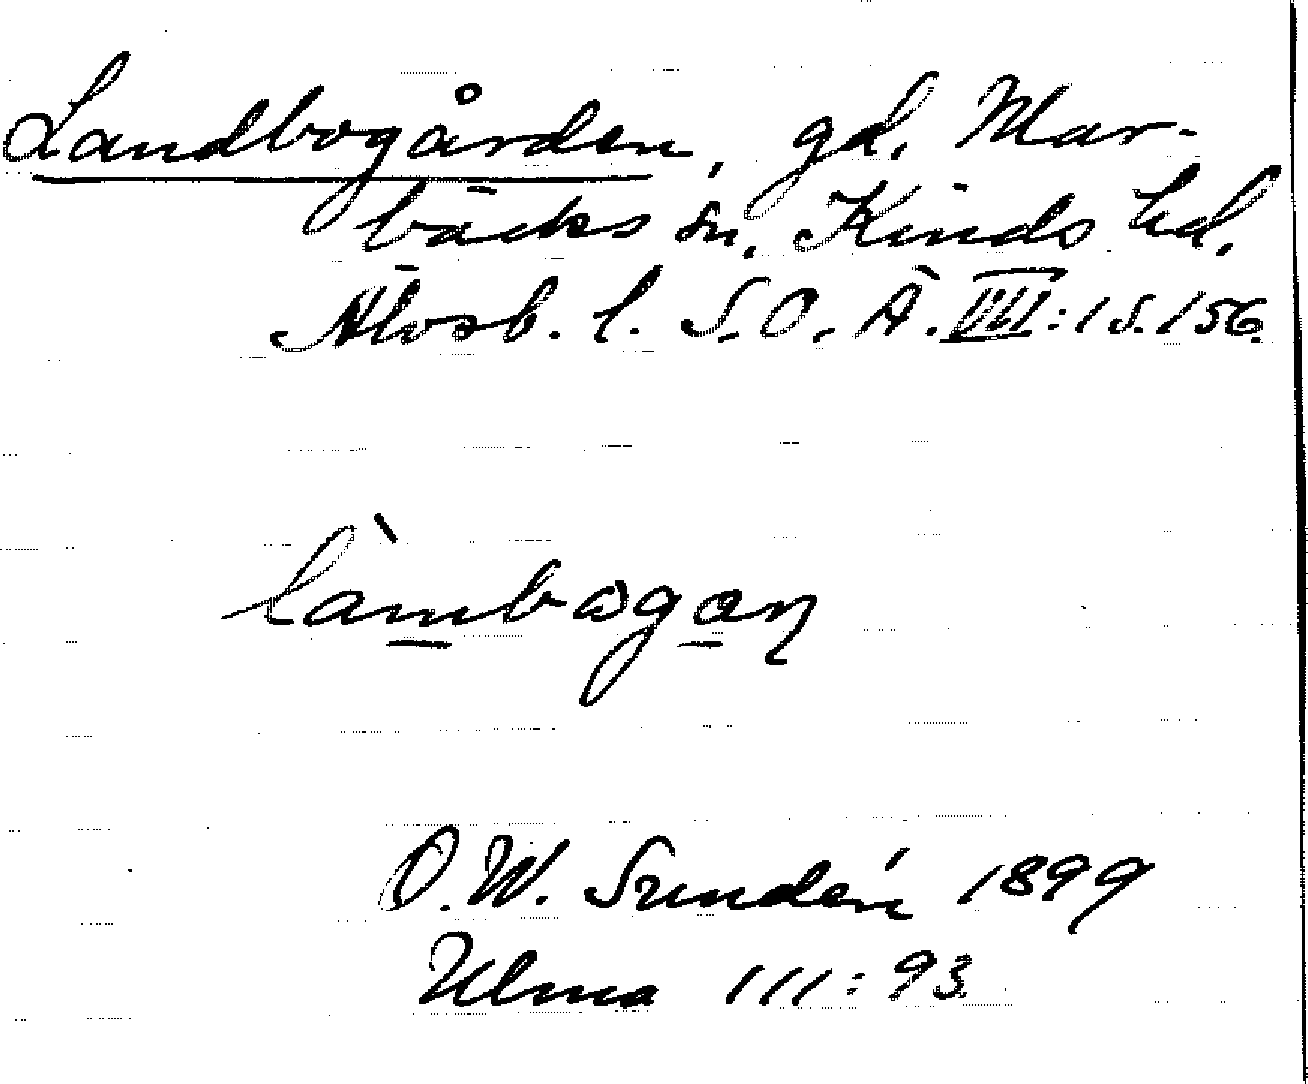 Landbogården, gd. Mar-
bäcks sn. Kinds hd.
Älvsb. l. S.O.Ä. VIII:1 s. 156.
làmbogan
O.W. Sundén 1899
Ulma 111:93